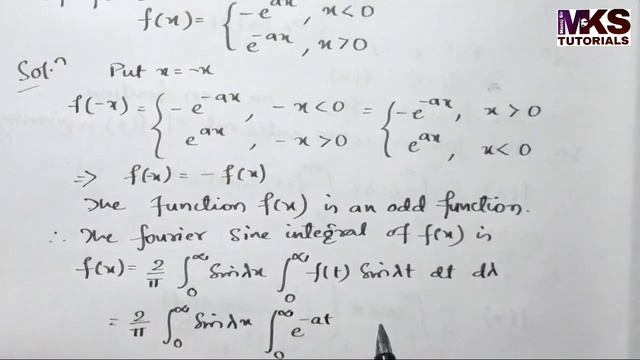 f(x) = { -e^{ax}, x<0
e^{-ax}, x>0
MKS
TUTORIALS
Sol.ⁿ Put x=-x
f(-x) = { -e^{-ax}, -x<0 = { -e^{-ax}, x>0
e^{ax}, -x>0 e^{ax}, x<0
=> f(-x) = - f(x)
The function f(x) is an odd function.
∴ The fourier sine integral of f(x) is
f(x) = 2/π ∫_0^∞ sinλx ∫_0^∞ f(t) sinλt dt dλ
= 2/π ∫_0^∞ sinλx ∫_0^∞ e^{-at}